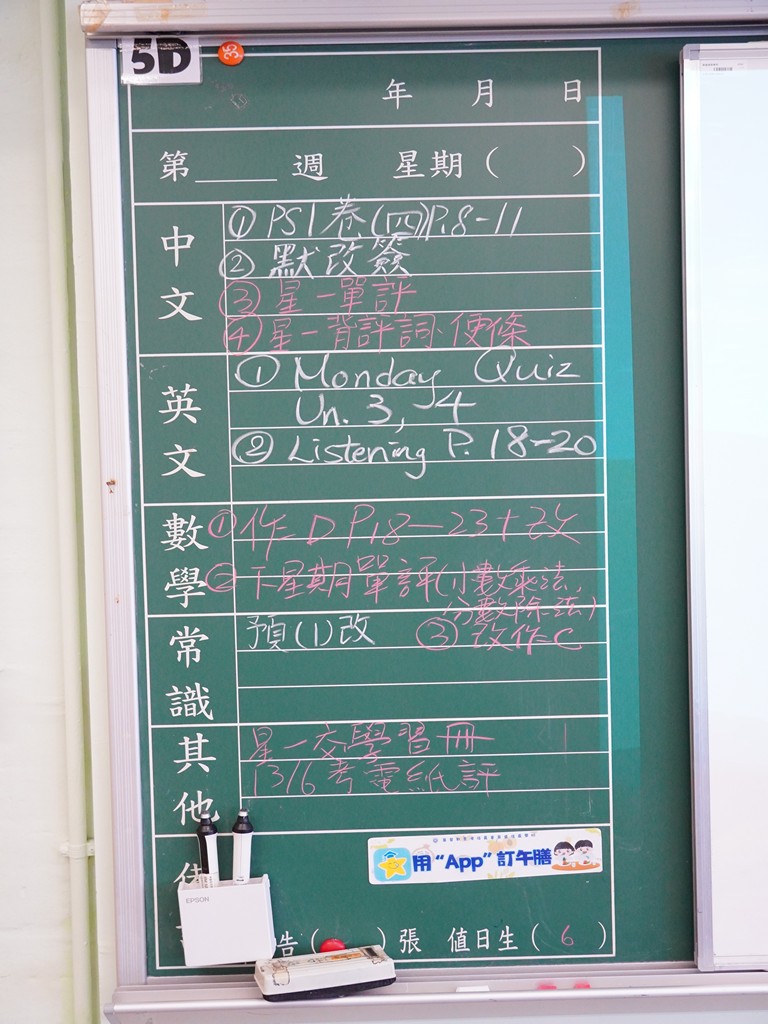 5D
35
年 月 日
第 週 星期( )
中文
① PS1卷(四)P.8-11
② 默改簽
③ 星一單評
④ 星一背評詞.便條
英文
① Monday Quiz
Un. 3, 4
② Listening P. 18-20
數學
① 作D P.18-23+改
② 下星期單評(小數乘法,
分數除法)
③ 改作C
常識
預(1)改
其他
星一交學習冊
13/6考電紙評
用 “App” 訂午膳
EPSON
告( )張 值日生( 6 )